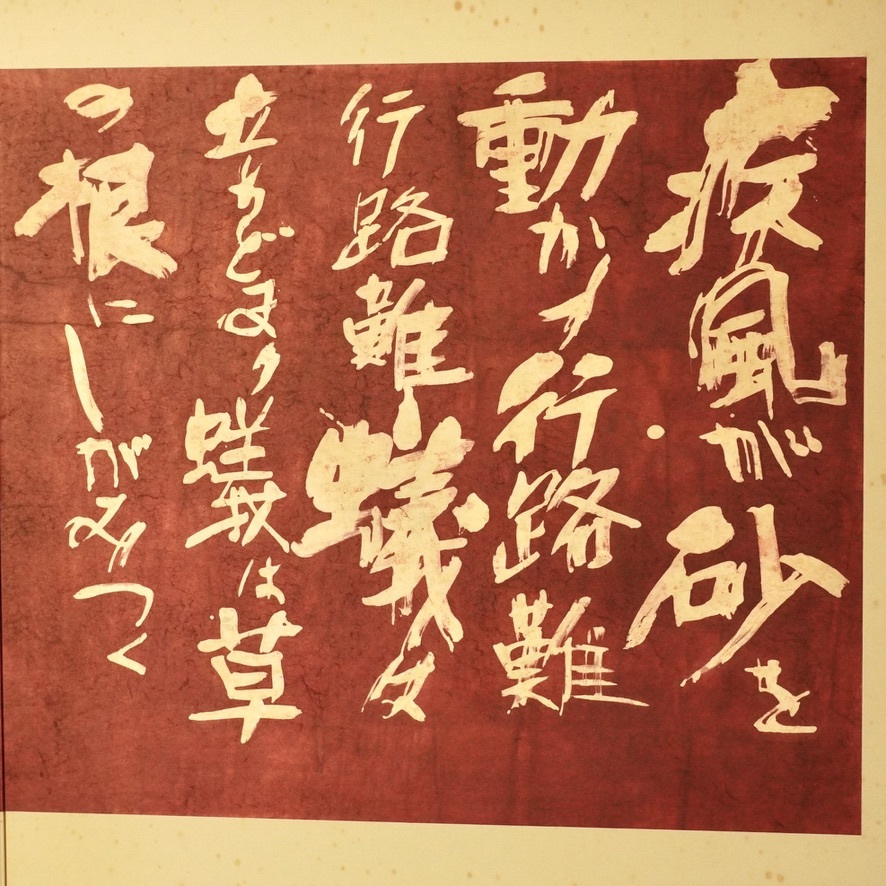 疾風が砂を
動かす行路難
行路難蟻は
立ちどまり蟻は草
の根にしがみつく